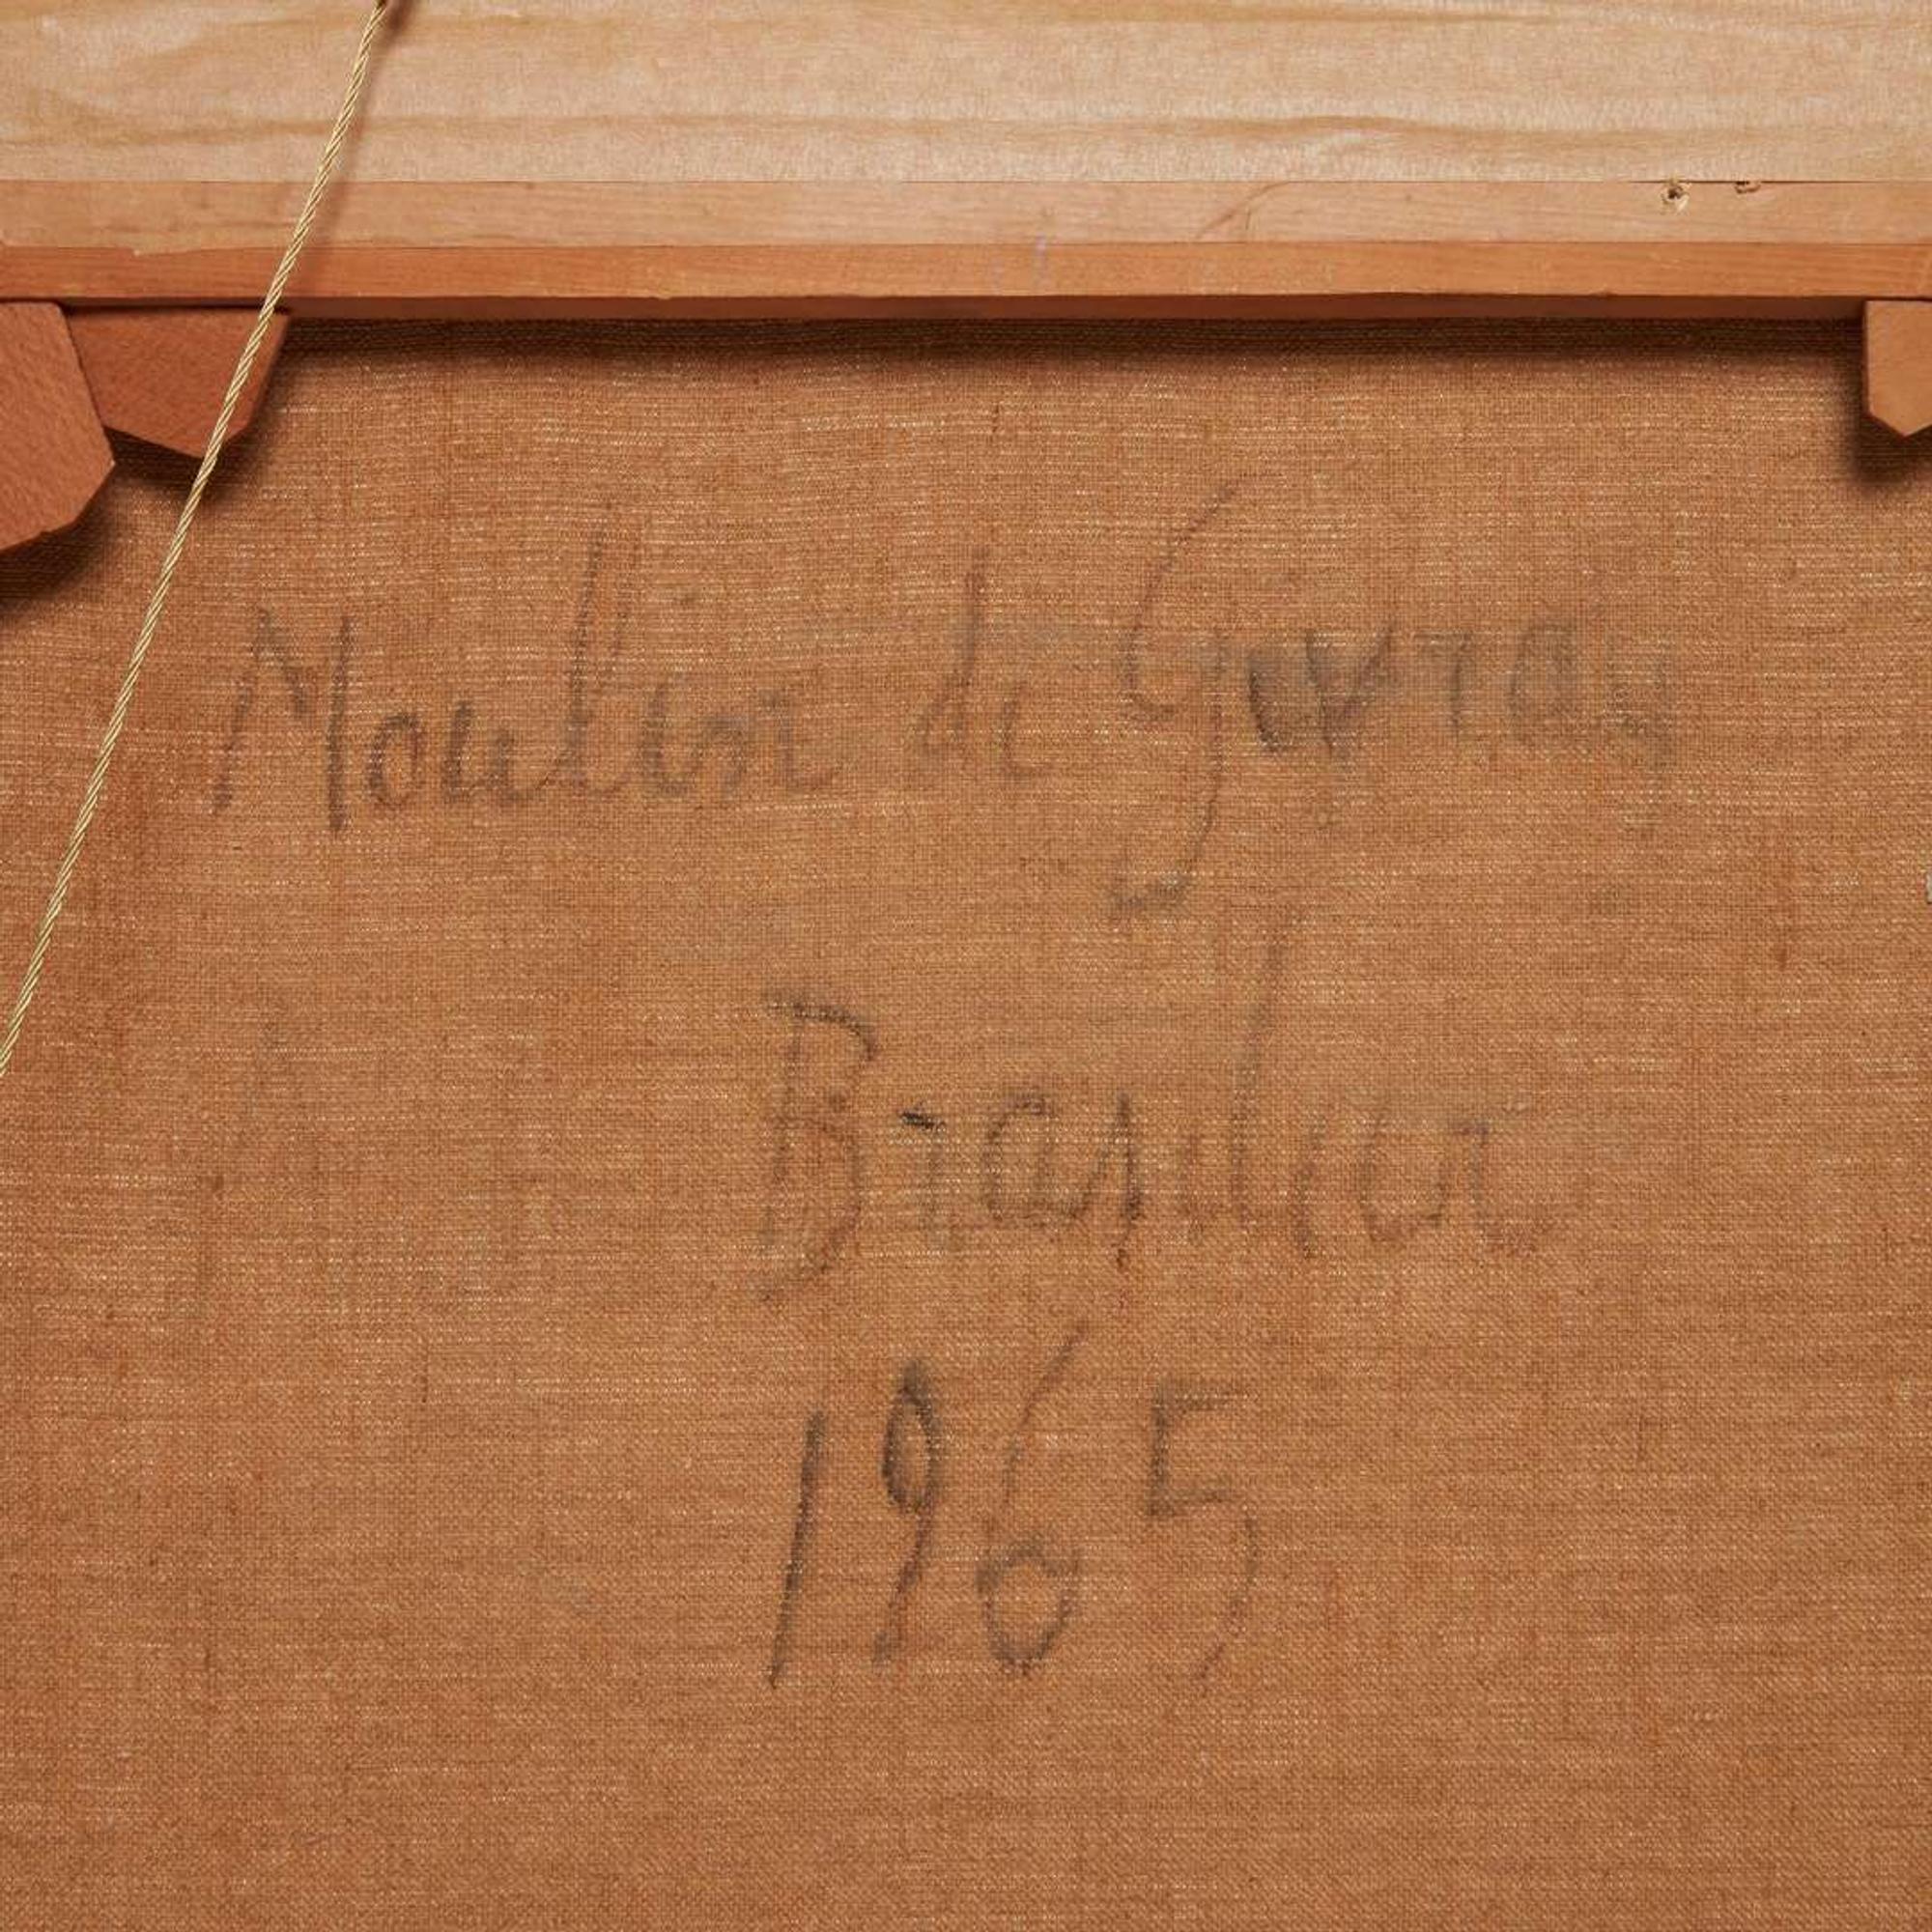 Moulin de Guvray
Brasilier
1965